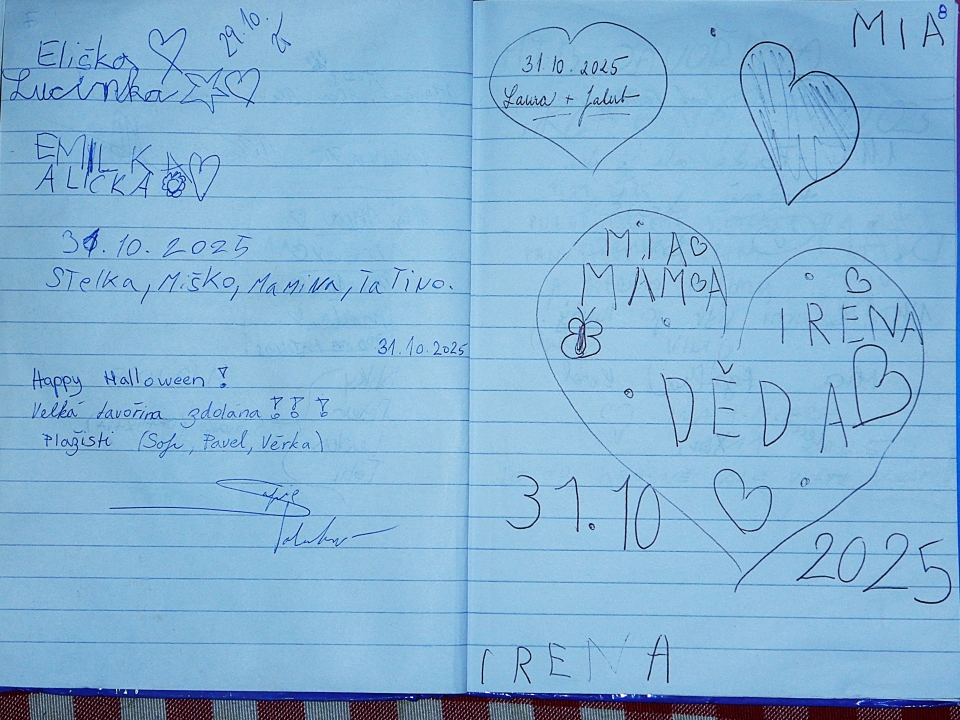 29.10.
Eliška
Lucinka
EMILKA
ALIČKA
31.10.2025
Stelka, Miško, Mamina, Tatino.
31.10.2025
Happy Halloween!
Velká Javořina zdolána!!!
Plažisti (Sofi, Pavel, Věrka)
8
MIA
31.10.2025
Laura + Jakub
MIA
MAMA
IRENA
DĚDA
31.10
2025
IRENA